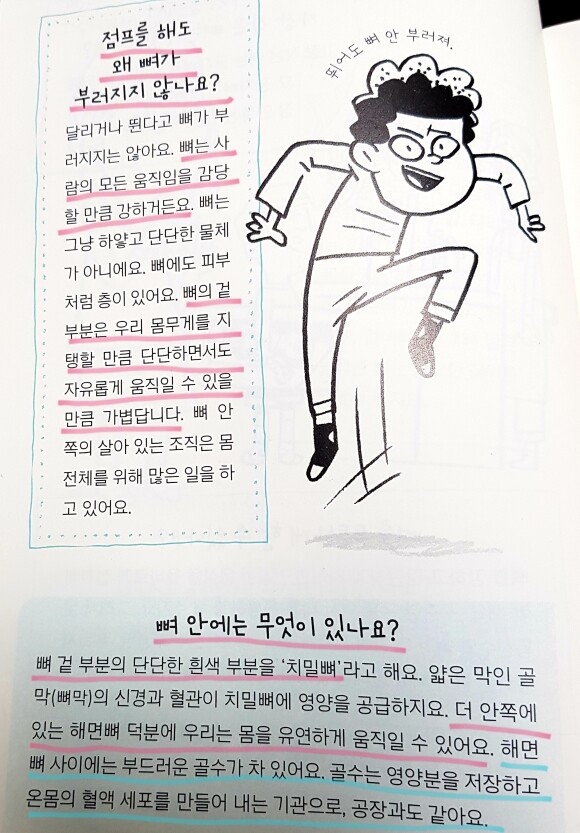 점프를 해도
왜 뼈가
부러지지 않나요?
달리거나 뛴다고 뼈가 부
러지지는 않아요. 뼈는 사
람의 모든 움직임을 감당
할 만큼 강하거든요. 뼈는
그냥 하얗고 단단한 물체
가 아니에요. 뼈에도 피부
처럼 층이 있어요. 뼈의 겉
부분은 우리 몸무게를 지
탱할 만큼 단단하면서도
자유롭게 움직일 수 있을
만큼 가볍답니다. 뼈 안
쪽의 살아 있는 조직은 몸
전체를 위해 많은 일을 하
고 있어요.
뛰어도 뼈 안 부러져.
뼈 안에는 무엇이 있나요?
뼈 겉 부분의 단단한 흰색 부분을 ‘치밀뼈’라고 해요. 얇은 막인 골
막(뼈막)의 신경과 혈관이 치밀뼈에 영양을 공급하지요. 더 안쪽에
있는 해면뼈 덕분에 우리는 몸을 유연하게 움직일 수 있어요. 해면
뼈 사이에는 부드러운 골수가 차 있어요. 골수는 영양분을 저장하고
온몸의 혈액 세포를 만들어 내는 기관으로, 공장과도 같아요.